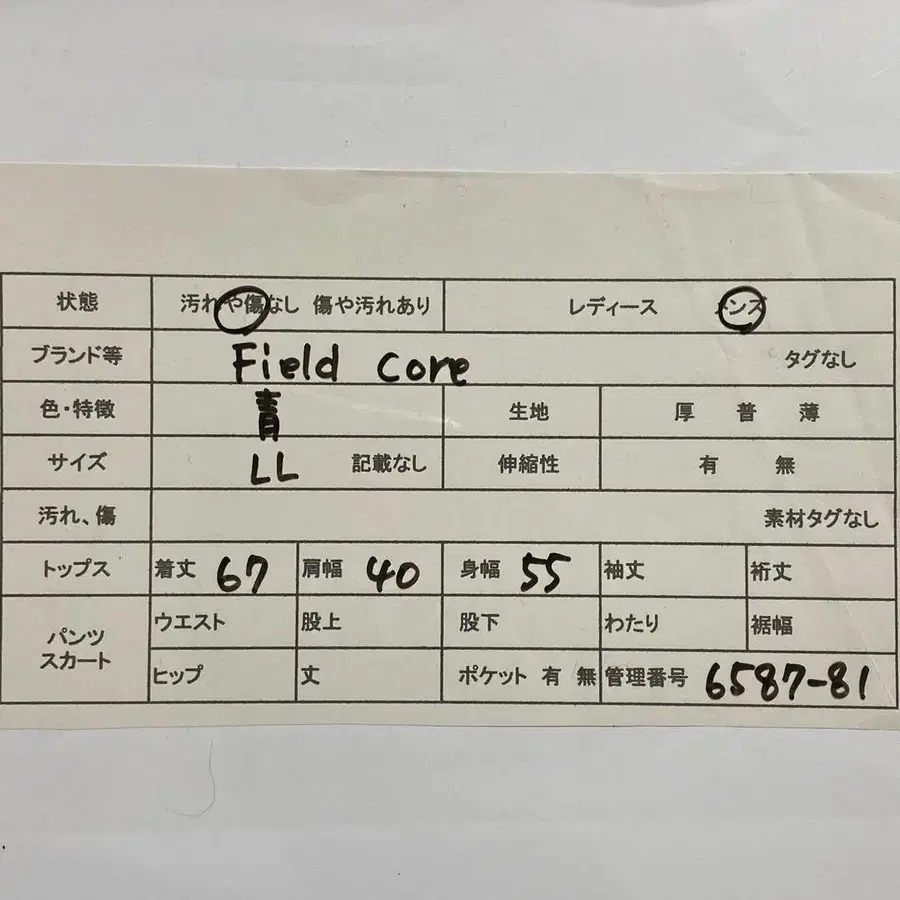 状態 汚れや傷なし 傷や汚れあり レディース メンズ
ブランド等 Field core タグなし
色・特徴 青 生地 厚 普 薄
サイズ LL 記載なし 伸縮性 有 無
汚れ、傷 素材タグなし
トップス 着丈 67 肩幅 40 身幅 55 袖丈 裄丈
パンツ スカート ウエスト 股上 股下 わたり 裾幅
ヒップ 丈 ポケット 有 無 管理番号 6587-81